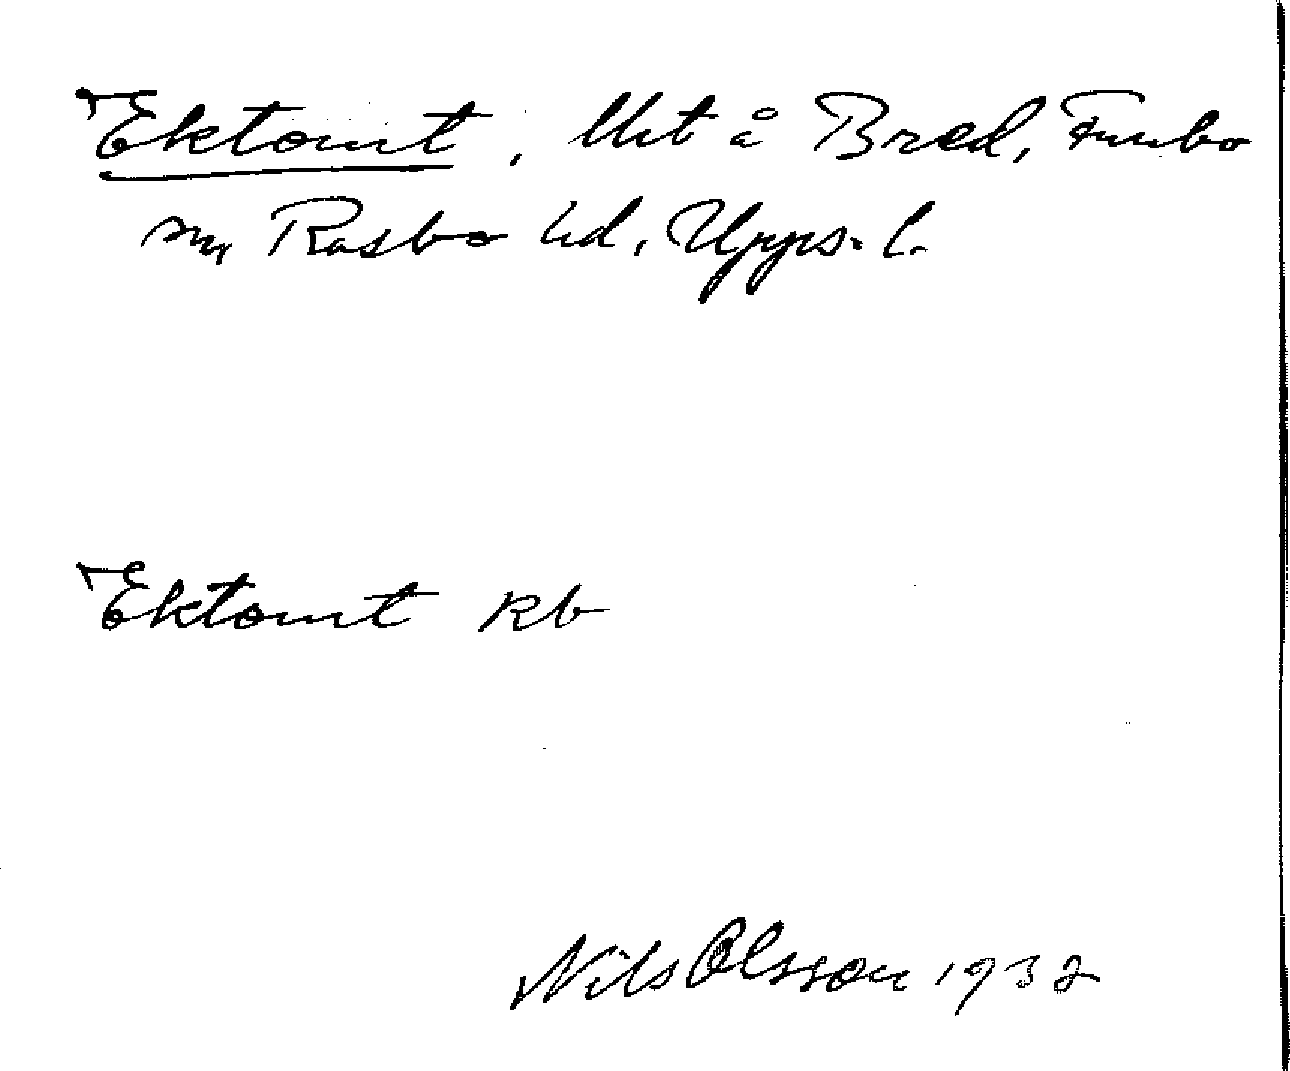 Ektomt, Urt å Bred, Funbo
sn, Rasbo hd, Upps. l.
Ektomt Rb
Nils Olsson 1932